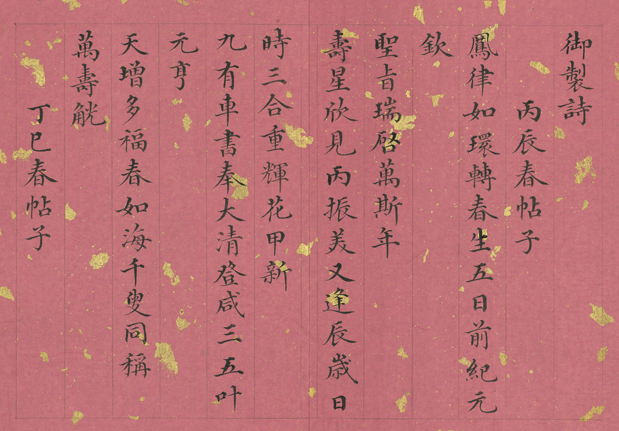 御製詩
丙辰春帖子
鳳律如環轉春生五日前紀元
欽
聖旨瑞啓萬斯年
壽星欣見丙振美又逢辰歲日
時三合重輝花甲新
九有車書奉大清登咸三五叶
元亨
天增多福春如海千叟同稱
萬壽觥
丁巳春帖子